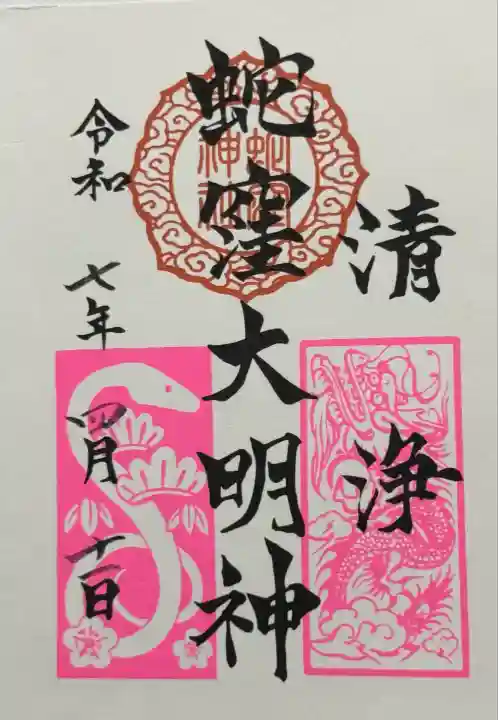 清浄
蛇窪大明神
令和七年四月十一日
蛇窪神社